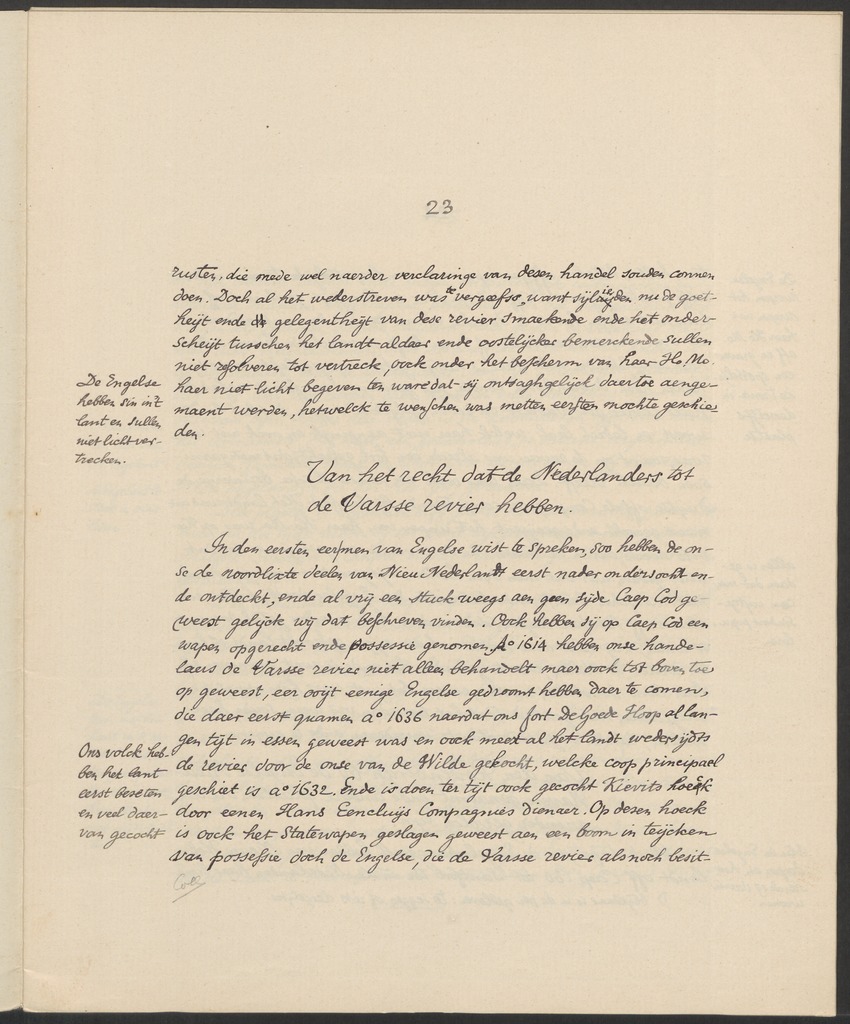 23
rusten, die mede wel naerder verclaringe van desen handel souden connen
doen. Doch al het wederstreven was te vergeefss, want sijluijden nu de goet-
heijt ende gelegentheijt van dese revier smaekende ende het onder-
scheijt tusschen het landt aldaer ende oostelijcker bemerckende sullen
niet resolveren tot vertreck, oock onder het bescherm van haer Ho. Mo.
haer niet licht begeven ten ware dat sij ontsaghgelijck daertoe aenge-
maent werden, hetwelck te wenschen was metten eersten mochte geschie-
den.
De Engelse
hebben sin in't
lant en sullen
niet licht ver-
trecken.
Van het recht dat de Nederlanders tot
de Varsse revier hebben.
In den eersten eer jmen van Engelse wist te spreken, soo hebben de on-
se de noordlixte deelen van Nieu Nederlandt eerst nader ondersocht en-
de ontdeckt, ende al vrij een stuck weegs aen geen sijde Caep Cod ge-
weest gelijck wij dat beschreven vinden. Oock hebben sij op Caep Cod een
wapen opgerecht ende possessie genomen. Ao 1614 hebben onse hande-
laers de Varsse revier niet alleen behandelt maer oock tot boven toe
op geweest, eer ooijt eenige Engelse gedroomt hebben daer te comen,
die daer eerst quamen ao 1636 naerdat ons fort De Goede Hoop al lan-
gen tijt in essen geweest was en oock meest al het landt wedersijdts
de revier door de onse van de Wilde gekocht, welcke coop principael
geschiet is ao 1632. Ende is doen ter tijt oock gecocht Kievits hoeck
door eenen Hans Eencluijs Compagnies dienaer. Op desen hoeck
is oock het Statewapen geslagen geweest aen een boom in teijcken
van possessie doch de Engelse, die de Varsse revier als noch besit-
Ons volck heb-
ben het lant
eerst beseten
en veel daer-
van gecocht
Coll